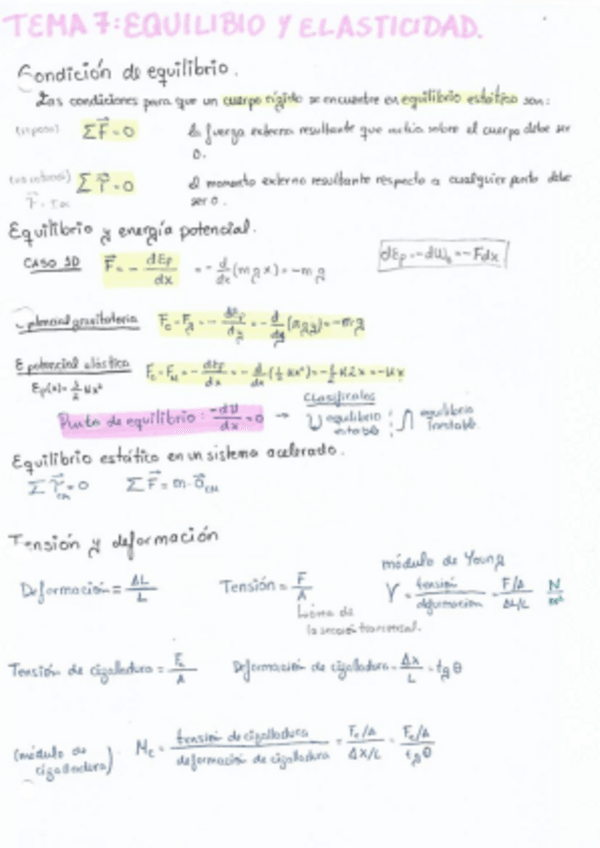 TEMA 7: EQUILIBIO Y ELASTICIDAD.
Condición de equilibrio.
Las condiciones para que un cuerpo rígido se encuentre en equilibrio estático son:
(reposo) ΣF⃗=0 la fuerza externa resultante que actúa sobre el cuerpo debe ser
0.
(no rotación) Στ⃗=0 el momento externo resultante respecto a cualquier punto debe
ser 0.
Equilibrio y energía potencial.
CASO 1D F⃗=-dEp/dx = -d/dx(mgx)=-mg dEp=-dW=-Fdx
potencial gravitatoria = -dEp/dy = -d/dy(mgy)=-mg
E potencial elástica = -dEp/dx = -d/dx(1/2 kx²)=-1/2 k2x=-kx
Ep(x)=1/2 kx²
Punto de equilibrio: -dU/dx=0 → Clasificarlos
∪ equilibrio estable ; ∩ equilibrio inestable.
Equilibrio estático en un sistema acelerado.
Στ⃗CM=0 ΣF⃗=m·a⃗CM
Tensión y deformación
módulo de Young
Deformación = ΔL/L Tensión = F/A Y = tensión/deformación = F/A / ΔL/L N/m²
la sección transversal.
Tensión de cizalladura = Fc/A Deformación de cizalladura = Δx/L = tgθ
(módulo de cizalladura) Mc = tensión de cizalladura/deformación de cizalladura = Fc/A / Δx/L = Fc/A / tgθ